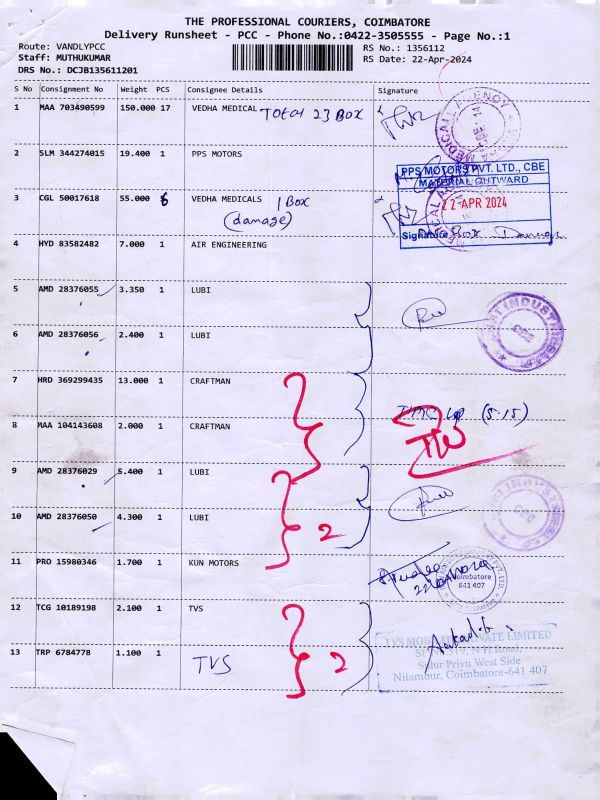 THE PROFESSIONAL COURIERS, COIMBATORE
Delivery Runsheet - PCC - Phone No.:0422-3505555 - Page No.:1
Route: VANDLYPCC
RS No.: 1356112
Staff: MUTHUKUMAR
RS Date: 22-Apr-2024
DRS No.: DCJB135611201
S No Consignment No Weight PCS Consignee Details Signature
1 MAA 703490599 150.000 17 VEDHA MEDICAL Total 23 Box
2 SLM 344274015 19.400 1 PPS MOTORS
PPS MOTORS PVT. LTD., CBE
MATERIAL OUTWARD
22 APR 2024
Signature
3 CGL 50017618 55.000 6 VEDHA MEDICALS 1 Box
(damage)
4 HYD 83582482 7.000 1 AIR ENGINEERING
5 AMD 28376055 3.350 1 LUBI
6 AMD 28376056 2.400 1 LUBI
7 HRD 369299435 13.000 1 CRAFTMAN
8 MAA 104143608 2.000 1 CRAFTMAN
(5.15)
9 AMD 28376029 5.400 1 LUBI
10 AMD 28376050 4.300 1 LUBI
2
11 PRO 15980346 1.700 1 KUN MOTORS
Coimbatore
641 407
12 TCG 10189198 2.100 1 TVS
13 TRP 6784778 1.100 1 TVS
2
PRIVATE LIMITED
N H Road,
Selur Privu West Side
Nilambur, Coimbatore-641 407